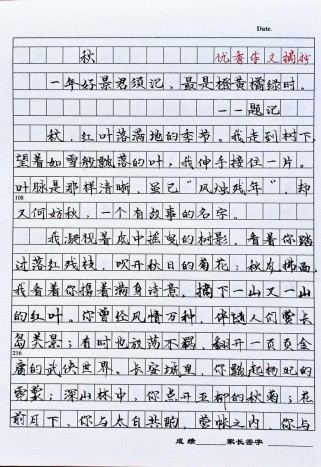 Date.
秋 优秀作文摘抄
一年好景君须记,最是橙黄橘绿时。
——题记
秋,红叶落满地的季节。我走到树下,
望着如雪般飘落的叶,我伸手接住一片。
叶脉是那样清晰,虽已“风烛残年”,却
108
又何妨秋,一个有故事的名字。
我凝视着皮中摇曳的树影,看着你踏
过落红残枝,吹开秋日的菊花;秋友拂面,
我看着你携着满身诗意,摘下一山又一山
的红叶。你曾经风情万种,伴随人们赏长
岛美景;有时也放荡不羁,翻开一页页金
216
庸的武侠世界。长安城里,你飘起杨妃的
霓裳;深山林中,你点开五柳的秋菊;花
前月下,你与太白共酌,营帐之内,你与
成绩 家长签字